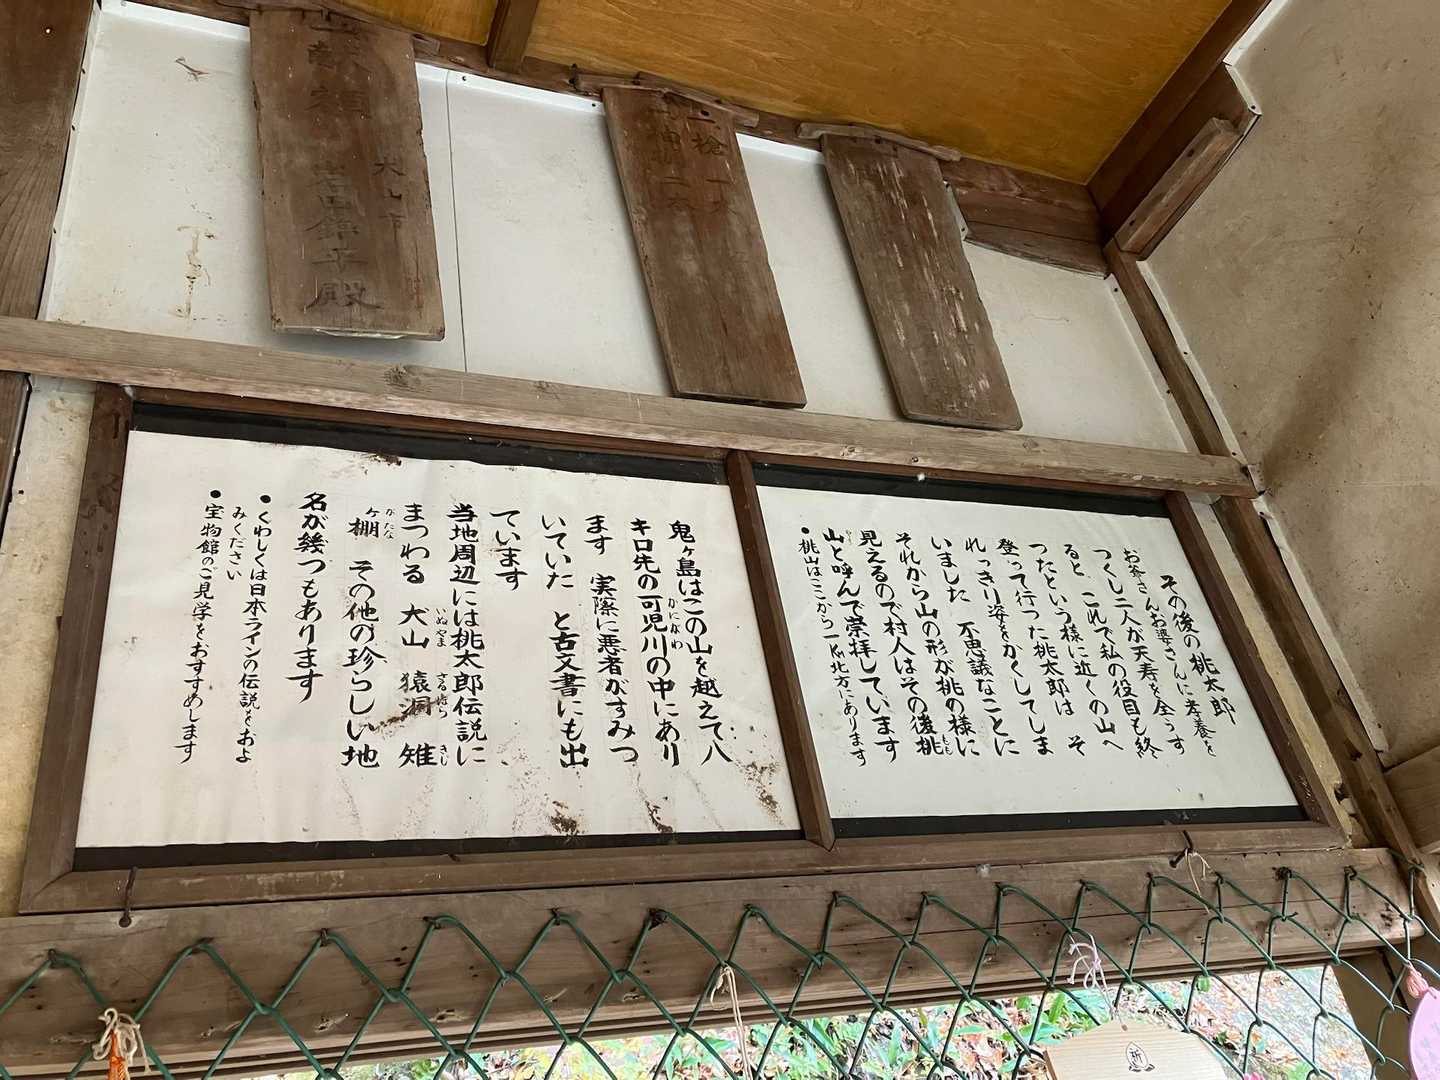 その後の桃太郎
お爺さんお婆さんに孝養を
つくし二人が天寿を全うす
ると、これで私の役目も終
つたという様に近くの山へ
登って行った桃太郎は そ
れっきり姿をかくしてしま
いました 不思議なことに
それから山の形が桃の様に
見えるので村人はその後桃
もも
山と呼んで崇拝しています
やま
・桃山はここから一㎞北方にあります
鬼ヶ島はこの山を越えて八
キロ先の可児川の中にあり
かにがわ
ます 実際に悪者がすみつ
いていた と古文書にも出
ています
当地周辺には桃太郎伝説に
まつわる 犬山 猿洞 雉
いぬやま さるぼら きじ
ヶ棚 その他の珍らしい地
がたな
名が幾つもあります
・くわしくは日本ラインの伝説をおよ
みください
・宝物館のご見学をおすすめします
犬山市
殿
一槍
祈